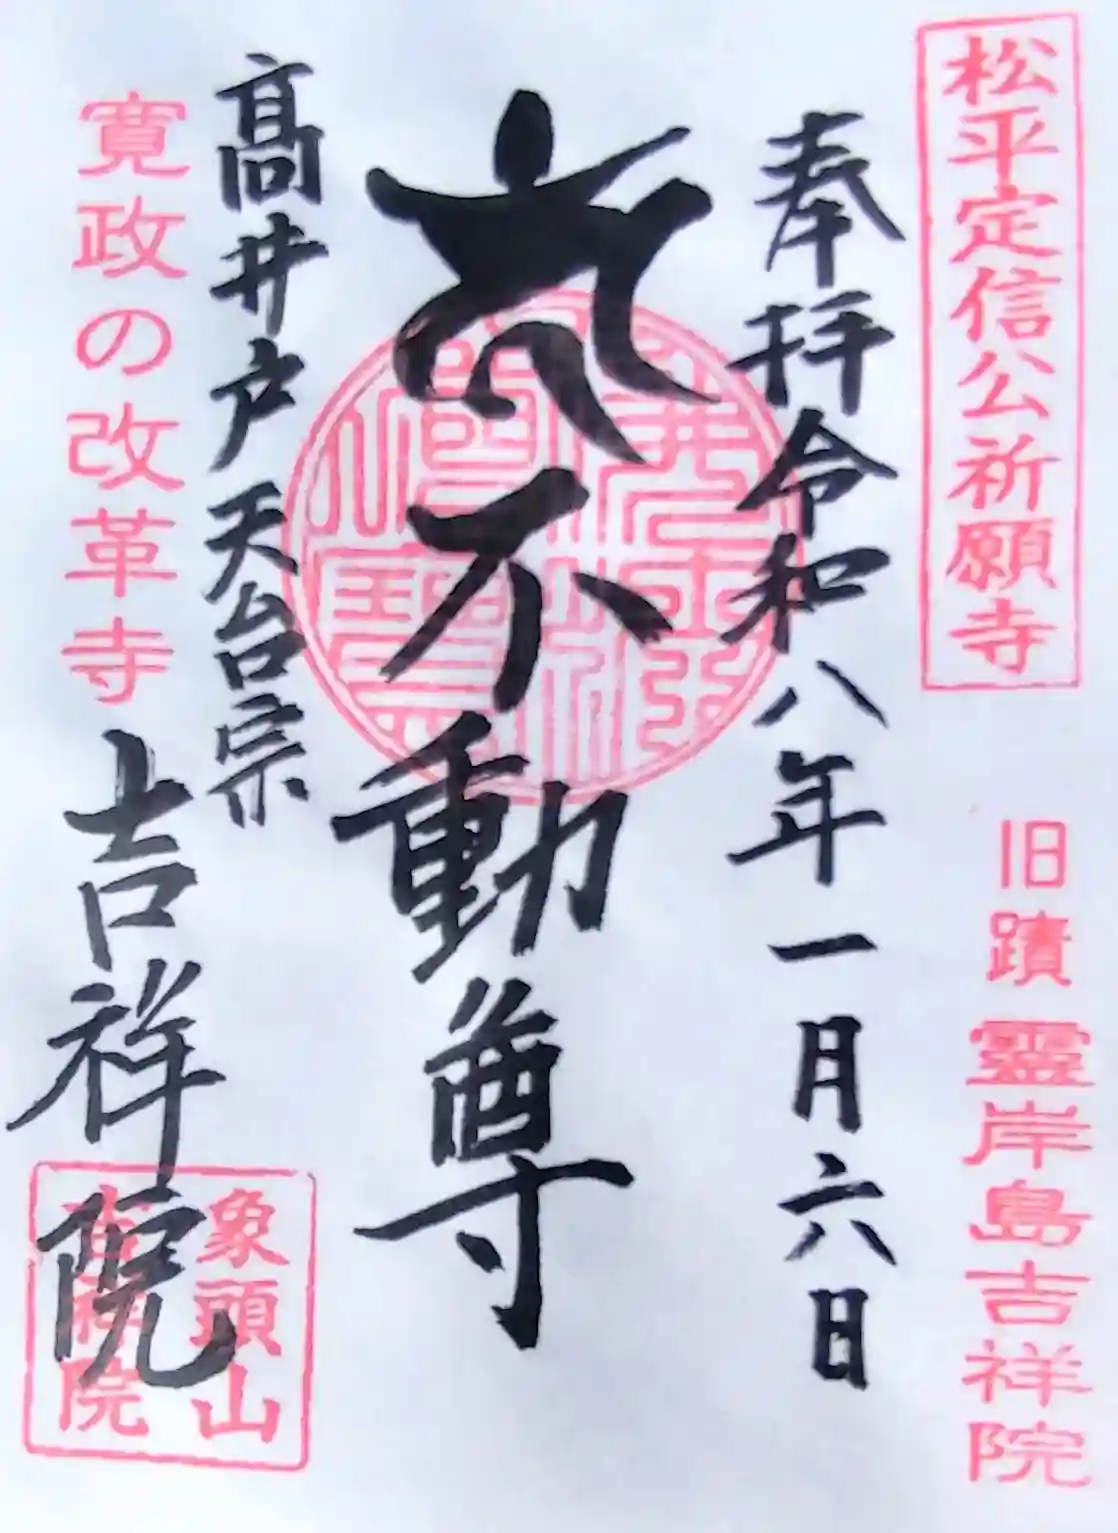 松平定信公祈願寺
旧蹟 靈岸島吉祥院
奉拝 令和八年一月六日
不動尊
髙井戸 天台宗
寛政の改革寺
吉祥院
象頭山
吉祥院